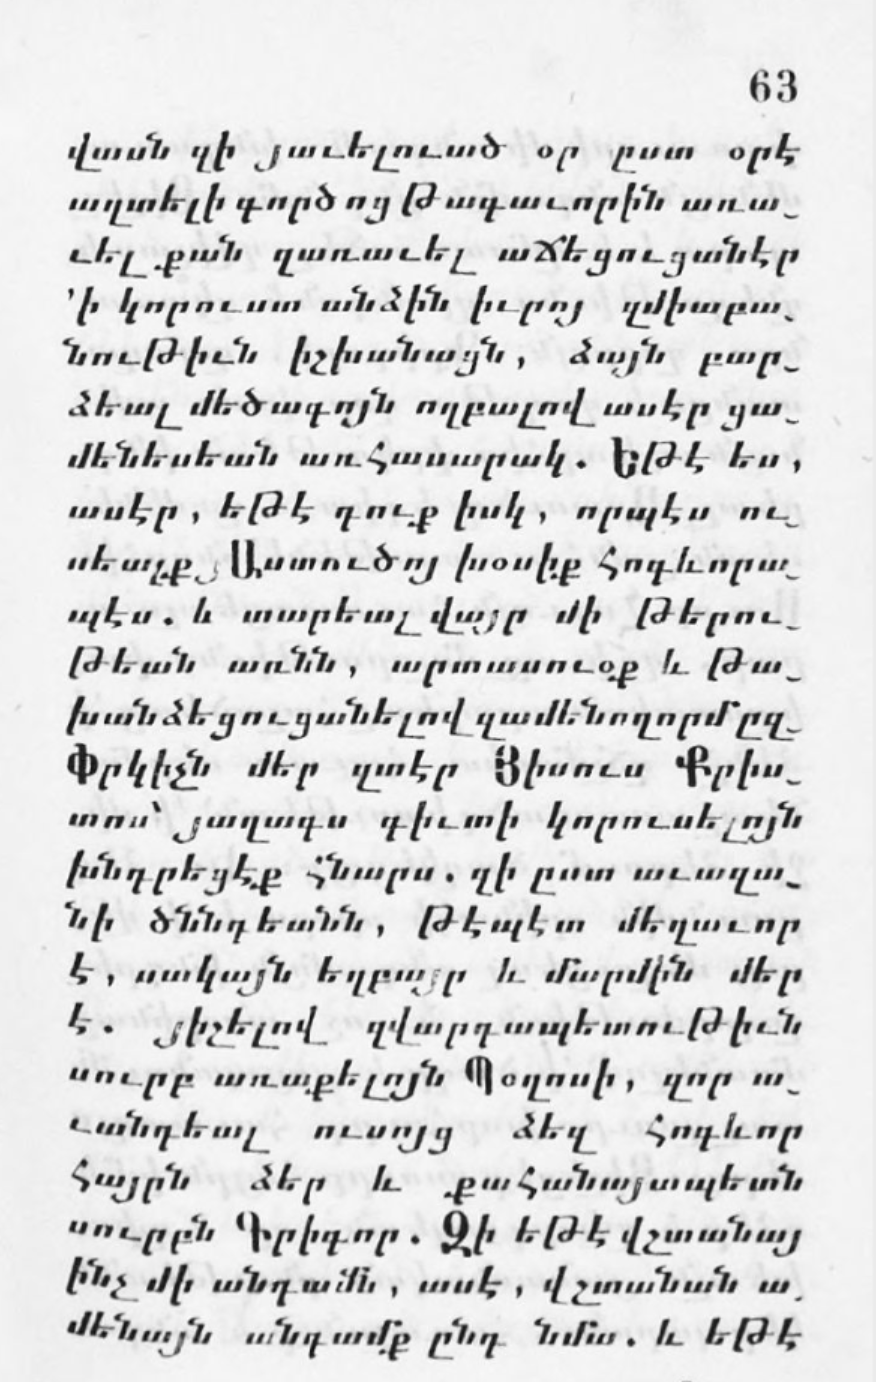 63
վասն զի յաւելուած օր ըստ օրէ
աղտելի գործոց Թագաւորին առա֊
ւել քան զառաւել աճեցուցանէր
՚ի կորուստ անձին իւրոյ զմիաբա֊
նուԹիւն իշխանացն, ձայն բար֊
ձեալ մեծագոյն ողբալով ասէր ցա֊
մենեսեան առհասարակ. ԵԹէ ես,
ասէր, եԹէ դուք իսկ, որպէս ու֊
սեալք յԱստուծոյ խօսիք հոգևորա֊
պէս. և տարեալ վայր մի Թերու֊
Թեան առնն, արտասուօք և Թա֊
խանձեցուցանելով զամենողորմըզ֊
Փրկիչն մեր զտէր Յիսուս Քրիս֊
տոս՝ յաղագս գիւտի կորուսելոյն
խնդրեցէք հնարս. զի ըստ աւազա֊
նի ծննդեանն, Թէպէտ մեղաւոր
է, սակայն եղբայր և մարմին մեր
է. յիշելով զվարդապետուԹիւն
սուրբ առաքելոյն Պօղոսի, զոր ա֊
ւանդեալ ուսոյց ձեզ հոգևոր
հայրն ձեր և քահանայապետն
սուրբն Գրիգոր. Զի եԹէ վշտանայ
ինչ մի անդամն, ասէ, վշտանան ա֊
մենայն անդամք ընդ նմա. և եԹէ